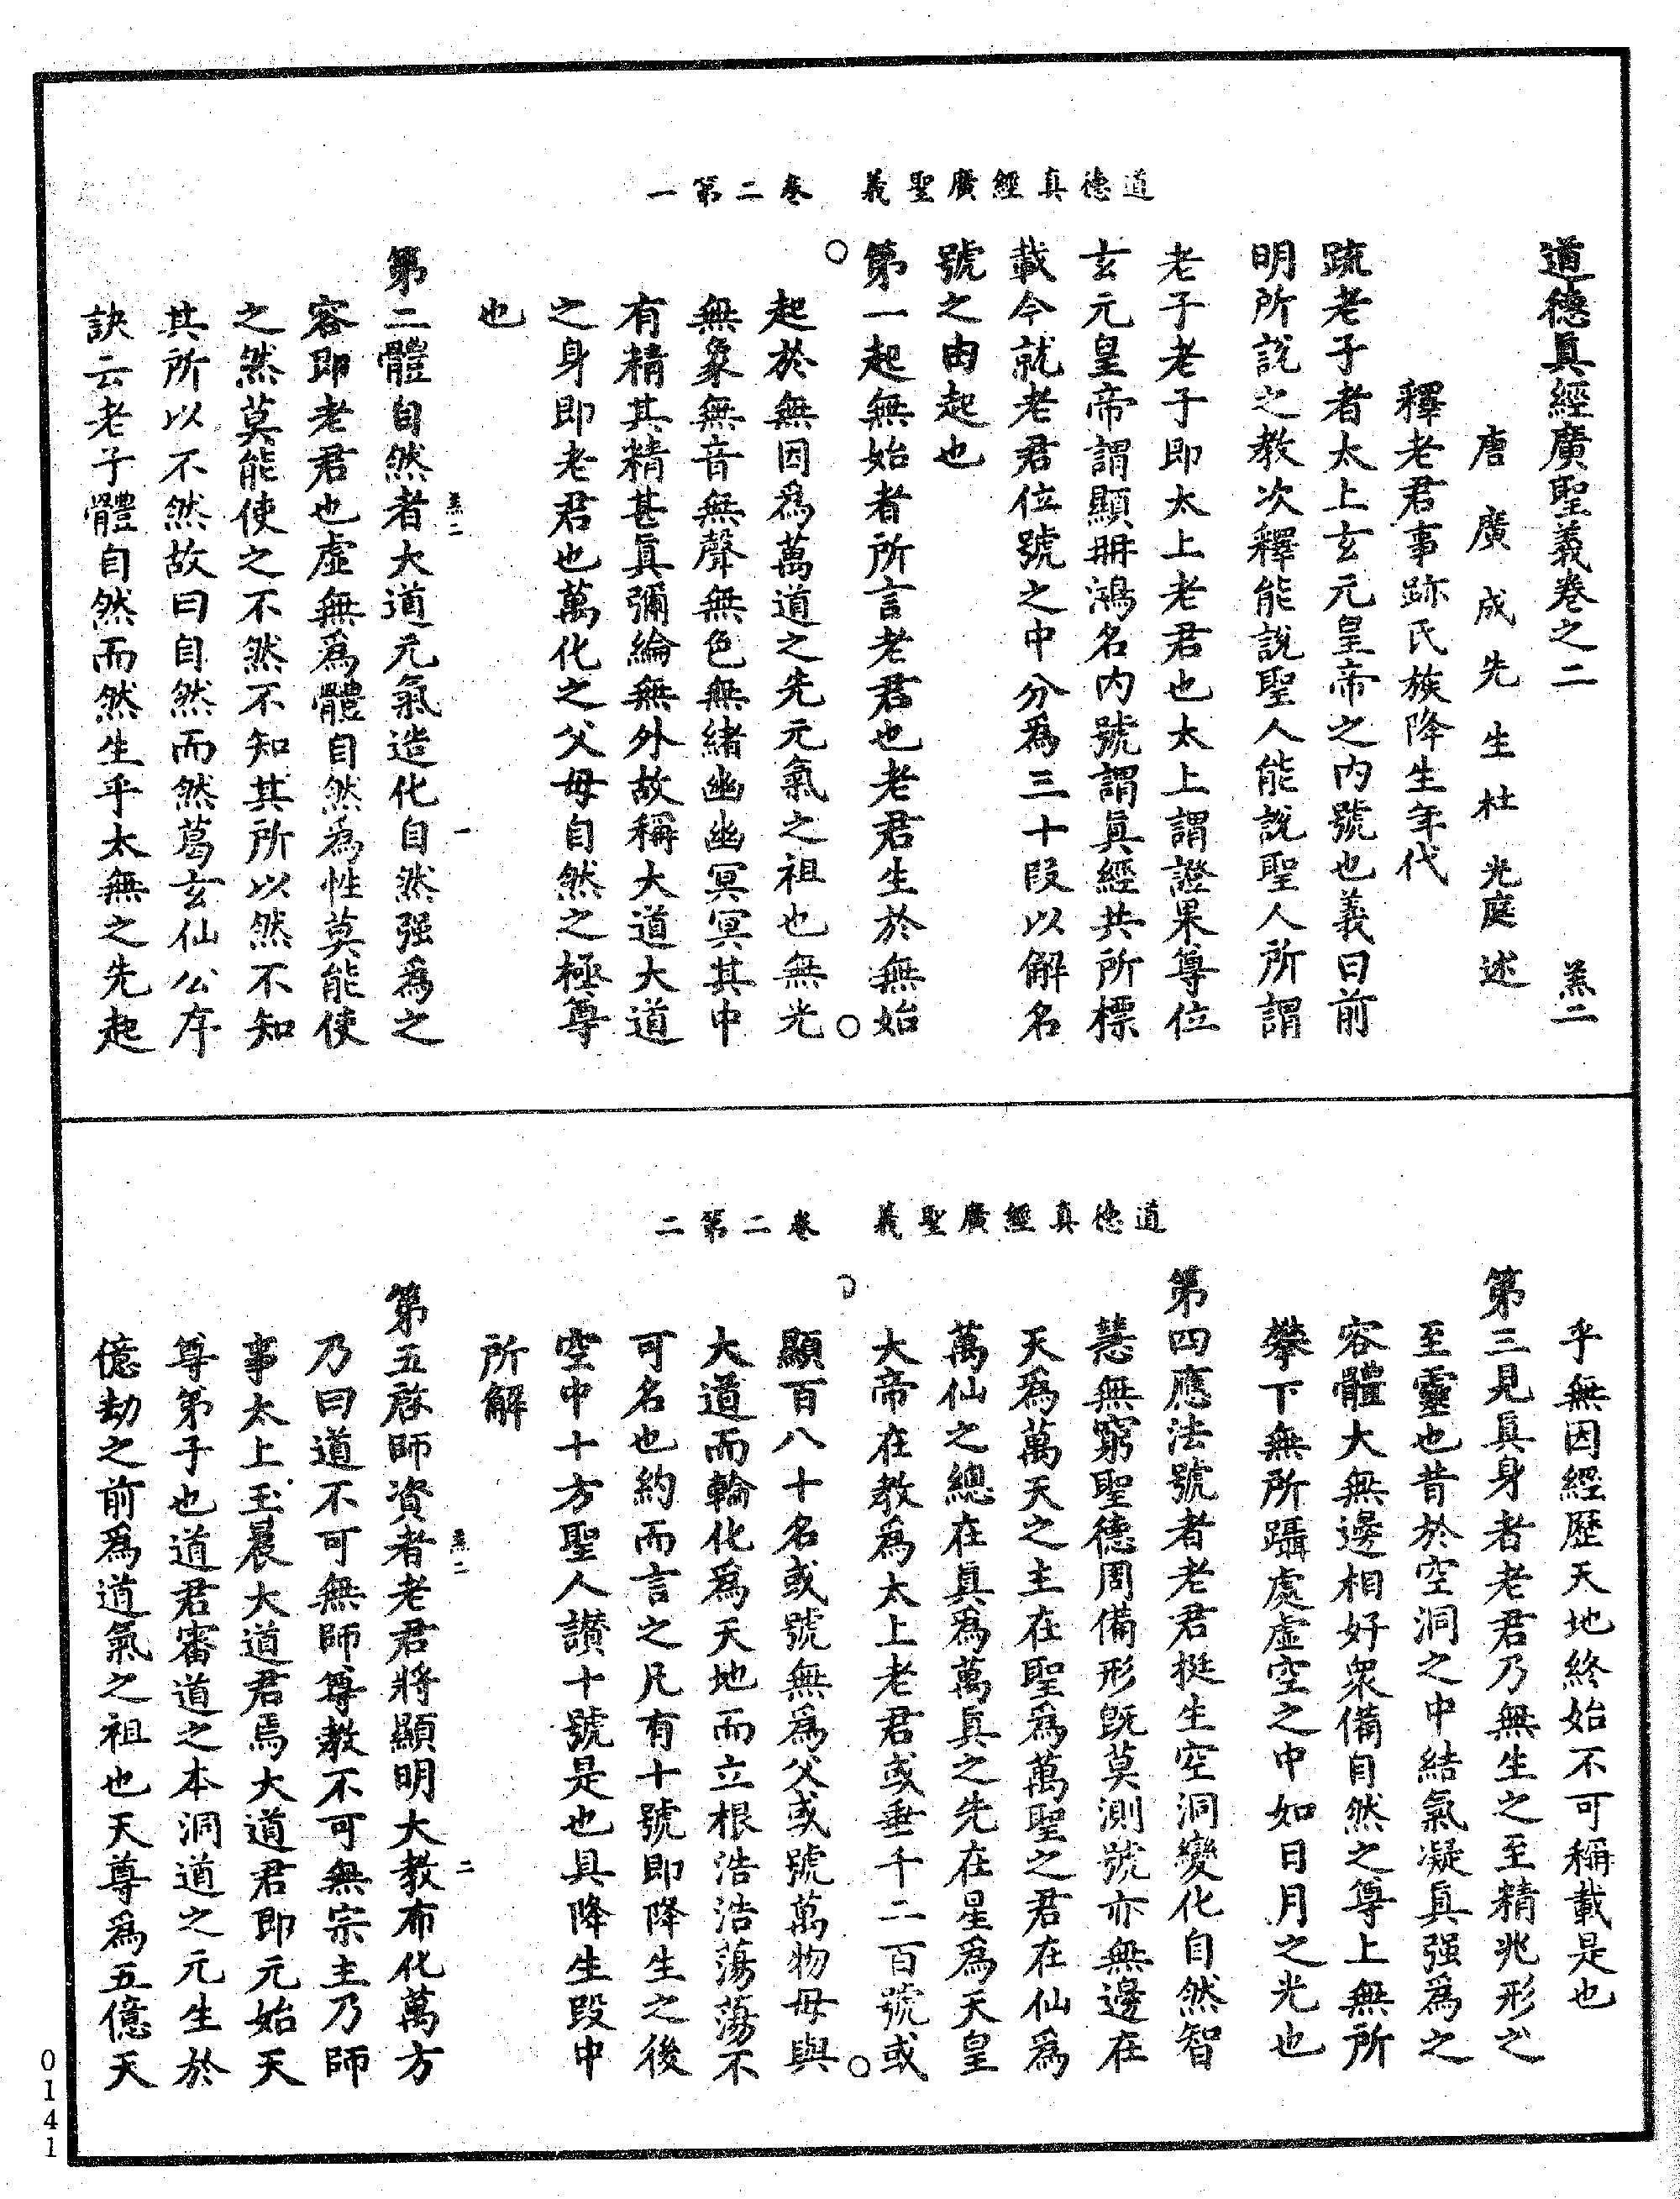 道德真經廣聖義　卷二第一
道德眞經廣聖義卷之二　羔二
唐廣成先生杜光庭述
釋老君事跡氏族降生年代
疏老子者太上玄元皇帝之内號也義曰前
明所說之教次釋能說聖人能說聖人所謂
老子老子即太上老君也太上謂證果尊位
玄元皇帝謂顯冊鴻名内號謂眞經共所標
載今就老君位號之中分爲三十段以解名
號之由起也
第一起無始者所言老君也老君生於無始
起於無因爲萬道之先元氣之祖也無光
無象無音無聲無色無緒幽幽冥冥其中
有精其精甚眞彌綸無外故稱大道大道
之身即老君也萬化之父母自然之極尊
也
羔二　一
第二體自然者大道元氣造化自然强爲之
容即老君也虛無爲體自然為性莫能使
之然莫能使之不然不知其所以然不知
其所以不然故曰自然而然葛玄仙公序
訣云老子體自然而然生乎太無之先起
道德真經廣聖義　卷二第二
乎無因經歷天地終始不可稱載是也
第三見眞身者老君乃無生之至精兆形之
至靈也昔於空洞之中結氣凝眞强爲之
容體大無邊相好衆備自然之尊上無所
攀下無所躡處虛空之中如日月之光也
第四應法號者老君挺生空洞變化自然智
慧無窮聖德周備形既莫測號亦無邊在
天爲萬天之主在聖爲萬聖之君在仙爲
萬仙之總在眞爲萬眞之先在星爲天皇
大帝在教爲太上老君或垂千二百號或
顯百八十名或號無爲父或號萬物母與
大道而輪化爲天地而立根浩浩蕩蕩不
可名也約而言之凡有十號即降生之後
空中十方聖人讚十號是也具降生段中
所解
羔二　二
第五啓師資者老君將顯明大教布化萬方
乃曰道不可無師尊教不可無宗主乃師
事太上玉晨大道君焉大道君即元始天
尊弟子也道君審道之本洞道之元生於
億劫之前爲道氣之祖也天尊爲五億天
0141